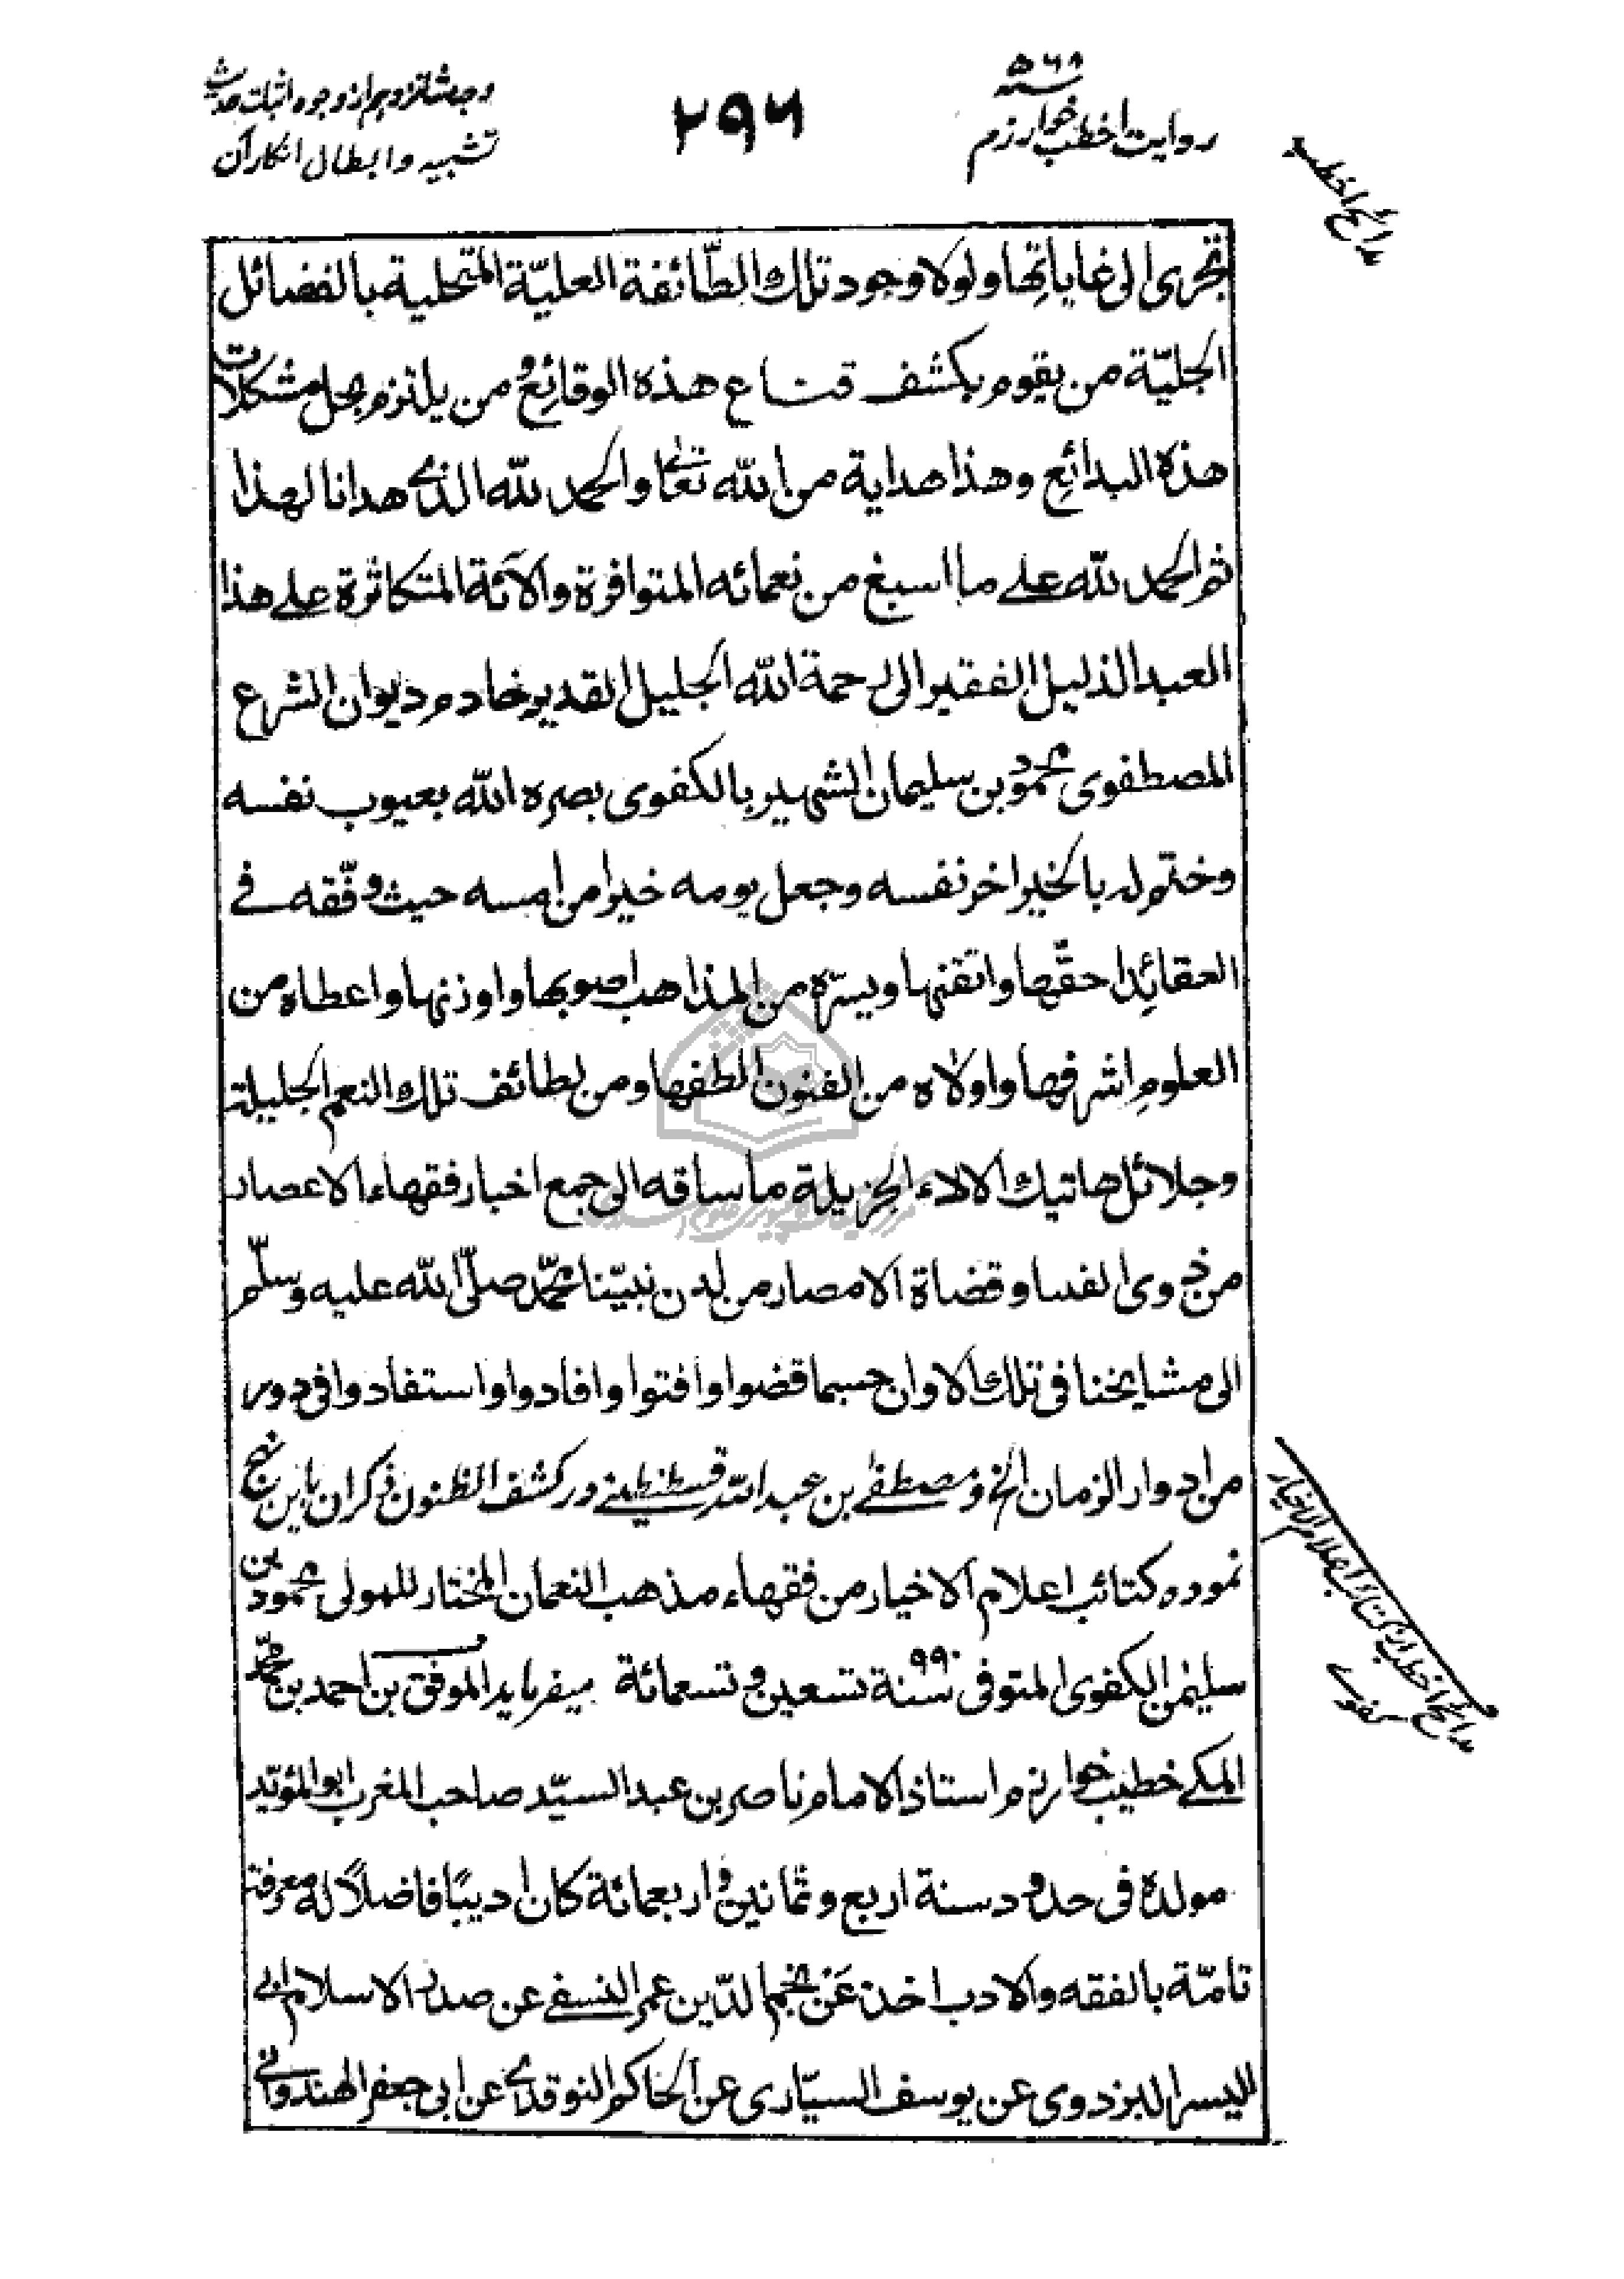 سنه ۵۶۸
روایت اخطب خوارزم
۲۹۶
وجه شانزدهم از وجوه اثبات حدیث
تشبیه و ابطال انکار آن
مدائح اخطب
تجری الی غایاتها ولولا وجود تلك الطّائفة العلیّة المتحلیة بالفضائل
الجلیّة من یقوم بکشف قناع هذه الوقائع و من یلتزم بحل مشکلات
هذه البدائع وهذا هدایة من الله تعالی والحمد لله الذی هدانا لهذا
ثم الحمد لله علی ما اسبغ من نعمائه المتوافرة والآئة المتکاثرة علی هذا
العبد الذلیل الفقیر الی رحمة الله الجلیل القدیر خادم دیوان الشرع
المصطفوی محمود بن سلیمان الشهیر بالکفوی بصره الله بعیوب نفسه
وختم له بالخیر اخر نفسه وجعل یومه خیرا من امسه حیث وفّقه فی
العقائد احقّها واتقنها ویسّره من المذاهب اصوبها واوزنها واعطاه من
العلوم اشرفها واولاه من الفنون الطفها ومن لطائف تلك النعم الجلیلة
وجلائل هاتیك الالاء الجزیلة ما ساقه الی جمع اخبار فقهاء الاعصار
من ذوی الفتیا وقضاة الامصار من لدن نبیّنا محمّد صلّی الله علیه وسلّم
الی مشایخنا فی تلك الاوان حسبما قضوا وافتوا وافادوا واستفادوا فی دور
من ادوار الزمان الخ و مصطفی بن عبد الله قسطنطینی در کشف الظنون ذکر آن باین نهج
نموده کتائب اعلام الاخیار من فقهاء مذهب النعمان المختار للمولی محمود بن
سلیمن الکفوی المتوفی سنة ۹۹۰ تسعین و تسعمائة میفرماید الموفق بن احمد بن محمّد
المکی خطیب خوارزم استاذ الامام ناصر بن عبد السیّد صاحب المغرب ابو المؤیّد
مولده فی حدود سنة اربع وثمانین و اربعمائة کان ادیبًا فاضلًا له معرفة
تامّة بالفقه والادب اخذ عن نجم الدّین عمر النسفی عن صدر الاسلام ابی
الیسر البزدوی عن یوسف السیّاری عن الحاکم النوقدی عن ابی جعفر الهندوانی
مدائح اخطب از کتائب اعلام الاخیار
کفوی